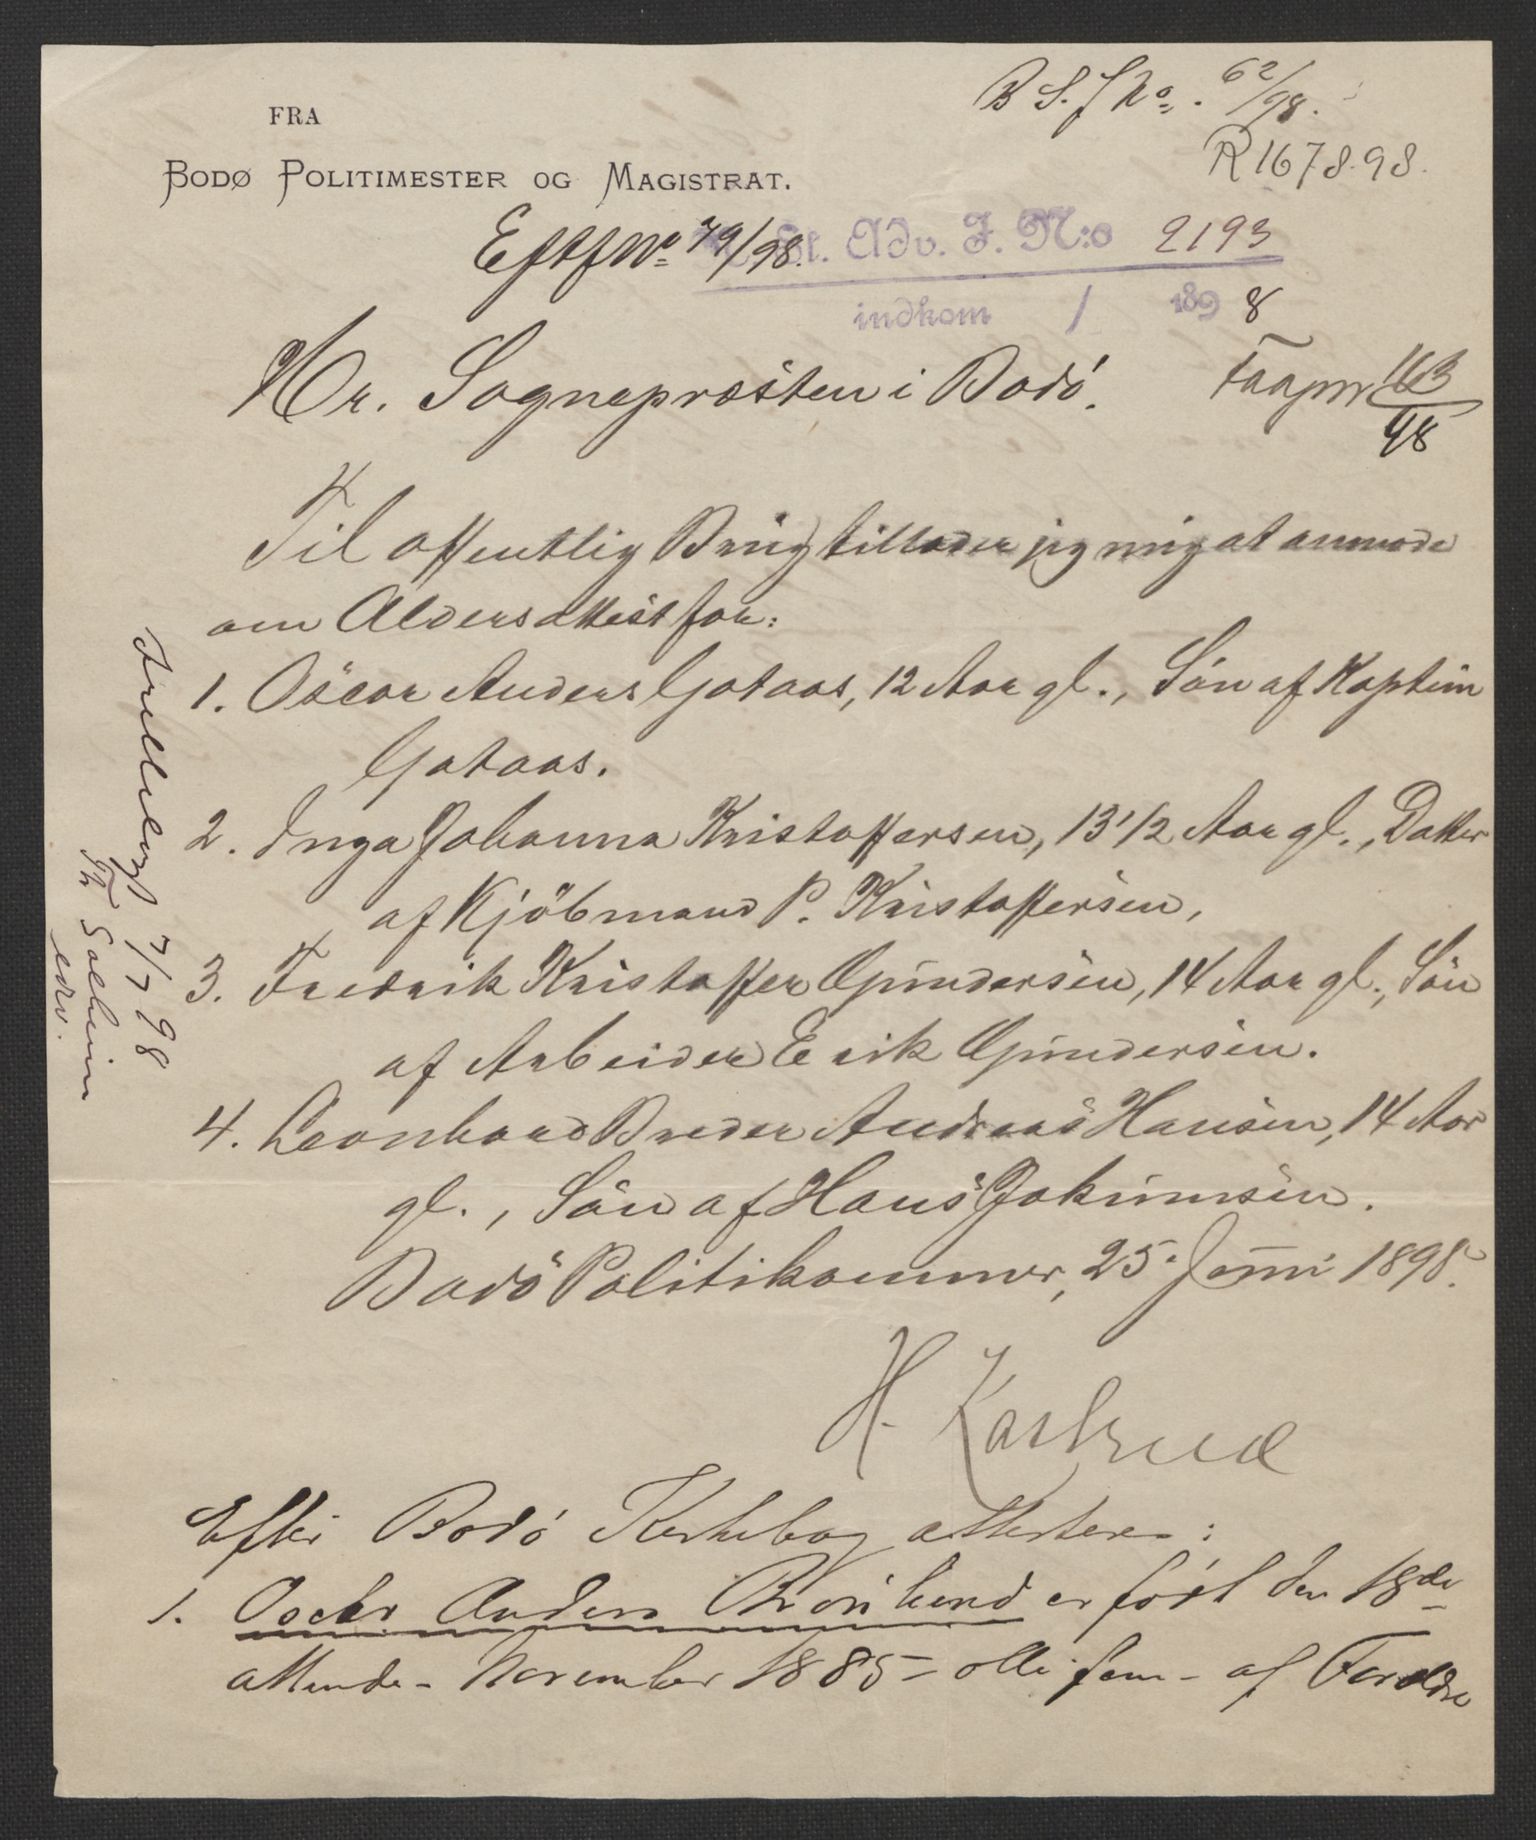 B S. J No. 62/98.
R 1678.98.
FRA
BODØ POLITIMESTER OG MAGISTRAT.
Eftf No 79/98.
St. Adv. J. N:o 2193
indkom / 1898
Hr. Sognepræsten i Bodö. 163/98
Til offentlig Brug tillader jeg mig at anmode
om Aldersattest for:
1. Oscar Anders Gataas, 12 Aar gl., Sön af Kaptein
Gataas.
2. Inga Johanna Kristoffersen, 13 1/2 Aar gl., Datter
af Kjöbmand P. Kristoffersen,
3. Fredrik Kristoffer Gundersen, 14 Aar gl., Sön
af Arbeider Erik Gundersen.
4. Leonhard Breder Andreas Hansen, 14 Aar
gl., Sön af Hans Jakimsen.
Bodö Politikammer, 25. Juni 1898.
H. Kastrud
Efter Bodö Kirkebog attesteres:
1. Oscar Anders er født den 18de
attende - November 1885 - otti fem - af Forældre
7/7 98
Solheim
edv.